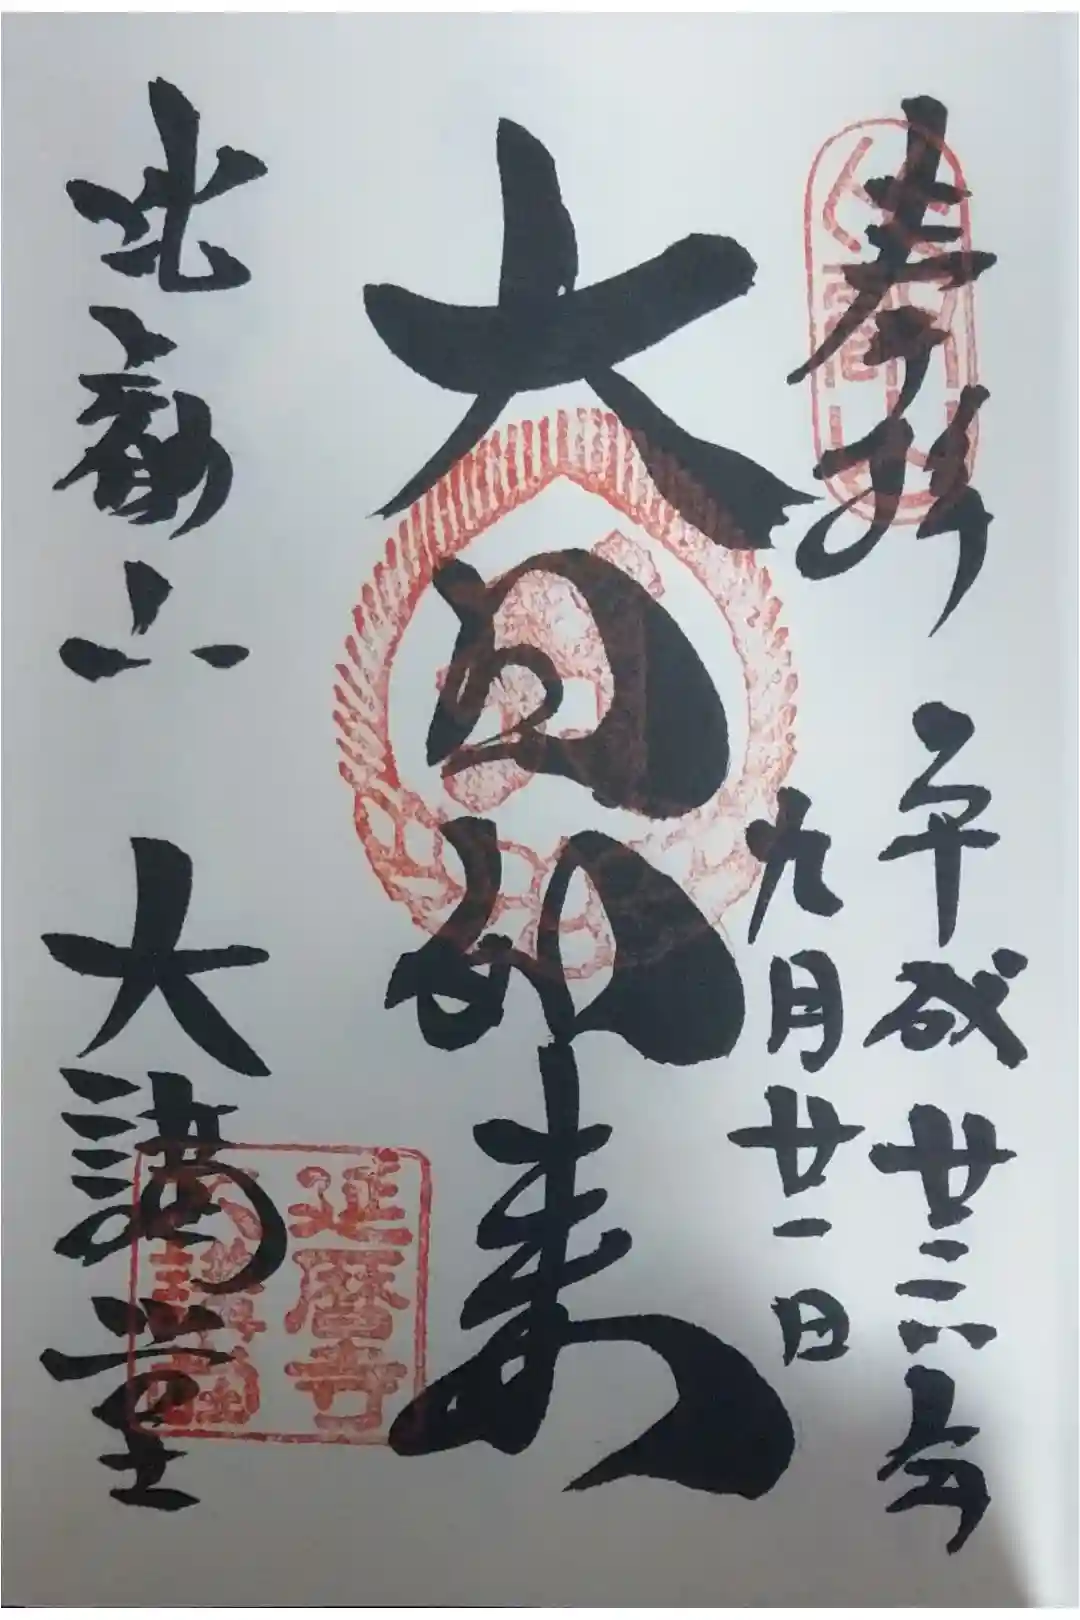 奉拝 平成廿六年
九月廿一日
大日如来
比叡山 大講堂
延暦寺